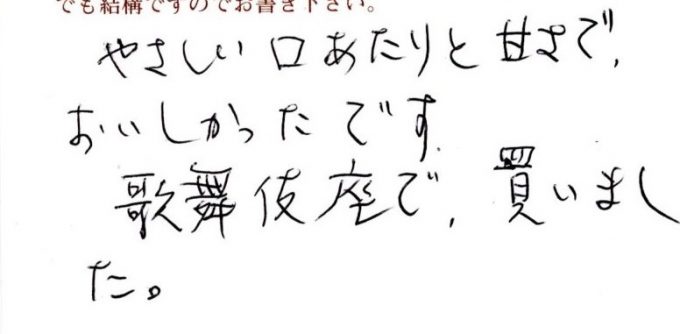 でも結構ですのでお書き下さい。
やさしい口あたりと甘さで、
おいしかったです。
歌舞伎座で、買いまし
た。